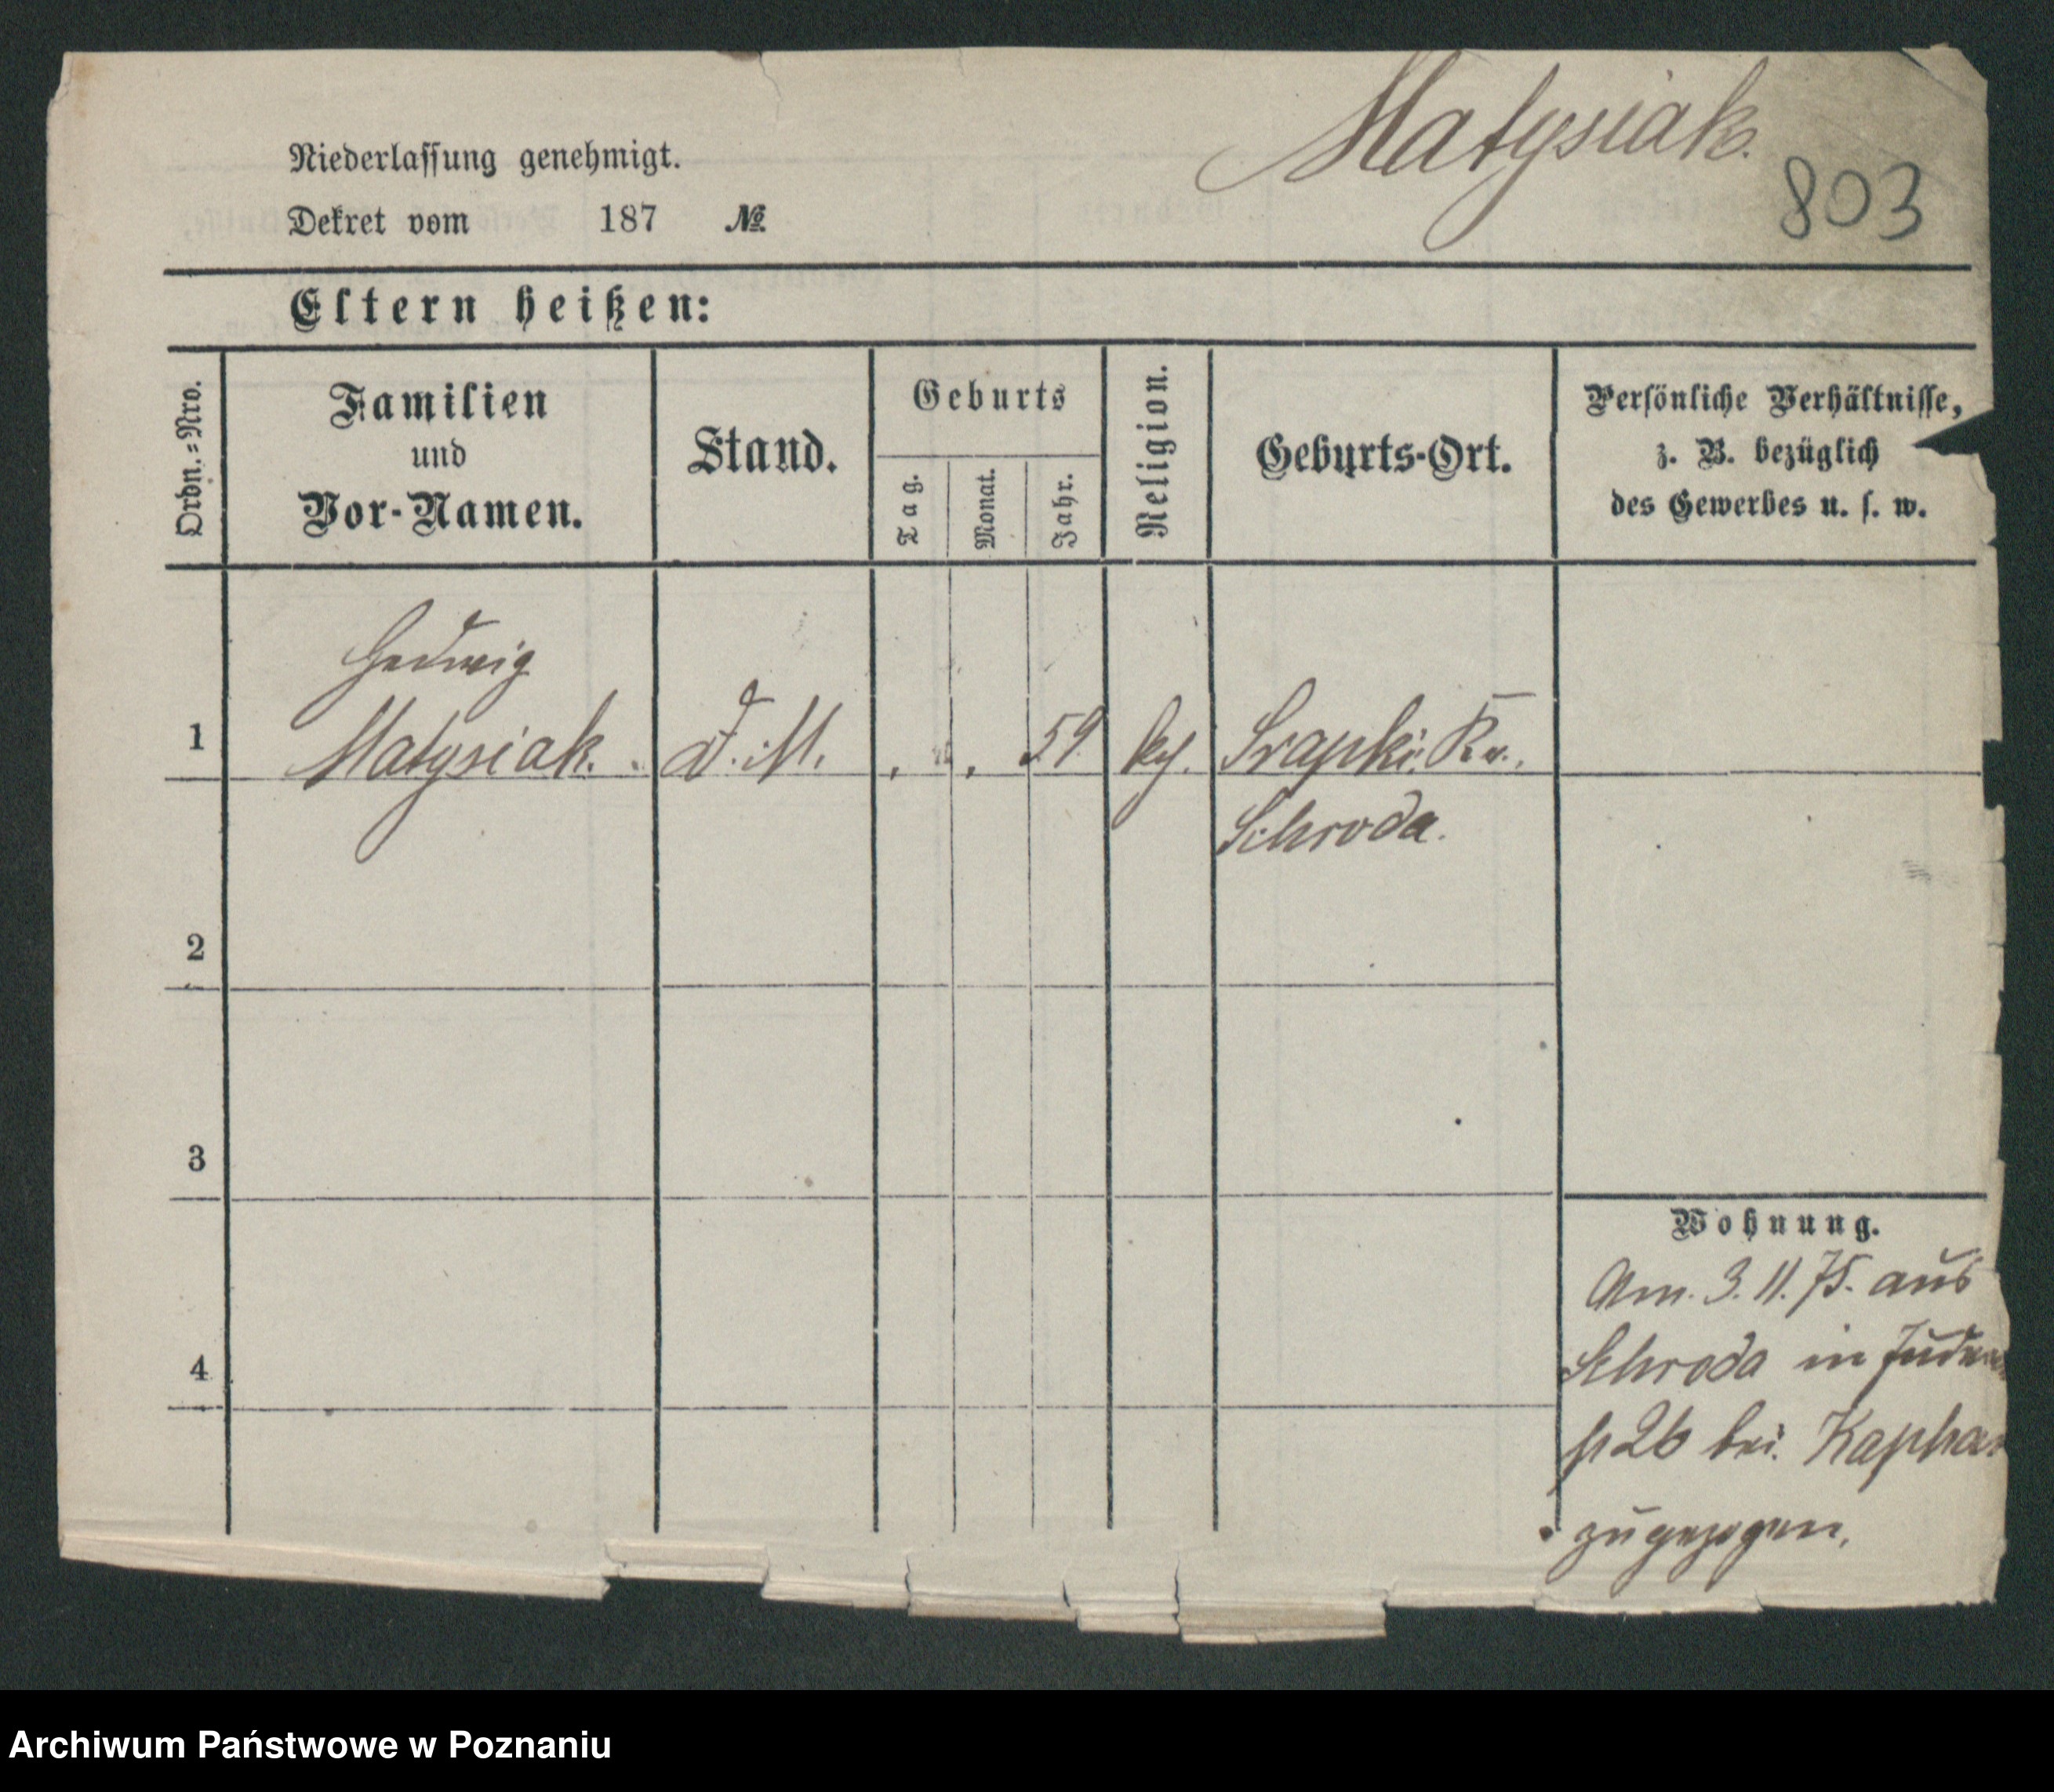 Matysiak.
803
Niederlassung genehmigt.
Dekret vom 187 №
Eltern heißen:
Ordn.=Nro.
Familien
und
Vor-Namen.
Stand.
Geburts
Tag.
Monat.
Jahr.
Religion.
Geburts-Ort.
Persönliche Verhältnisse,
z. B. bezüglich
des Gewerbes u. s. w.
Hedwig
1 Matysiak. d. M. 59 Kr.
Schroda.
2
3
4
Wohnung.
Am. 3. 11. 75. aus
Schroda in Juden
26 bei
zugezogen.
Archiwum Państwowe w Poznaniu